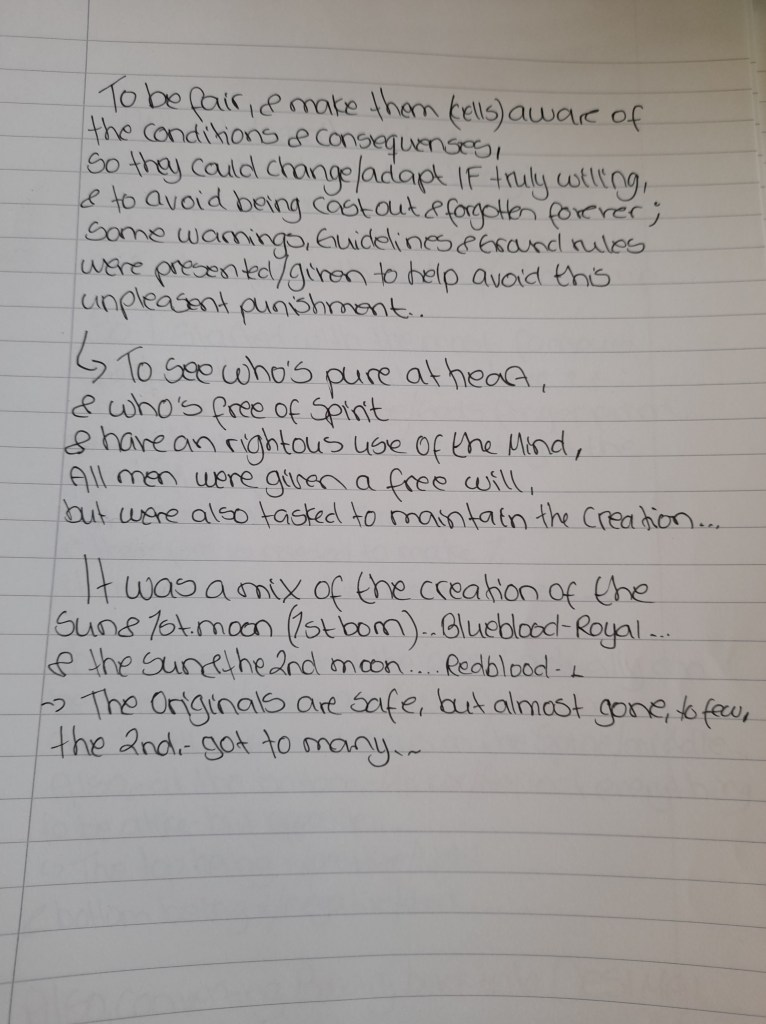 To be fair, & make them (cells) aware of
the conditions & consequenses,
so they could change/adapt IF truly willing,
& to avoid being cast out & forgotten forever;
some warnings, Guidelines & Grand rules
were presented/given to help avoid this
unpleasent punishment..
↳ To see who's pure at heart,
& who's free of Spirit
& have an rightous use of the Mind,
All men were given a free will,
but were also tasked to maintain the Creation...
It was a mix of the creation of the
Sun & 1st. moon (1st born)..Blueblood-Royal...
& the sun & the 2nd moon.... Redblood-
-> The Originals are safe, but almost gone, to few,
the 2nd.- got to many..~